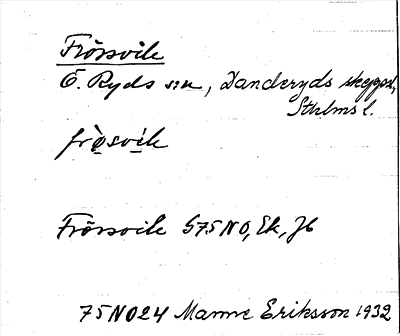 Frösvik
Ö. Ryds s:n, Danderyds skeppsl.,
Sthlms l.
frøsvik
Frösvik S75NO, Ek, Jb
75NO24 Manne Eriksson 1932